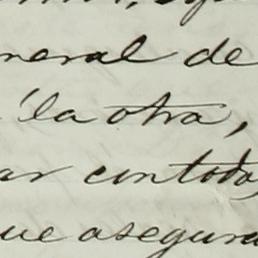 neral de
la otra,
ar con todo,
ue asegura